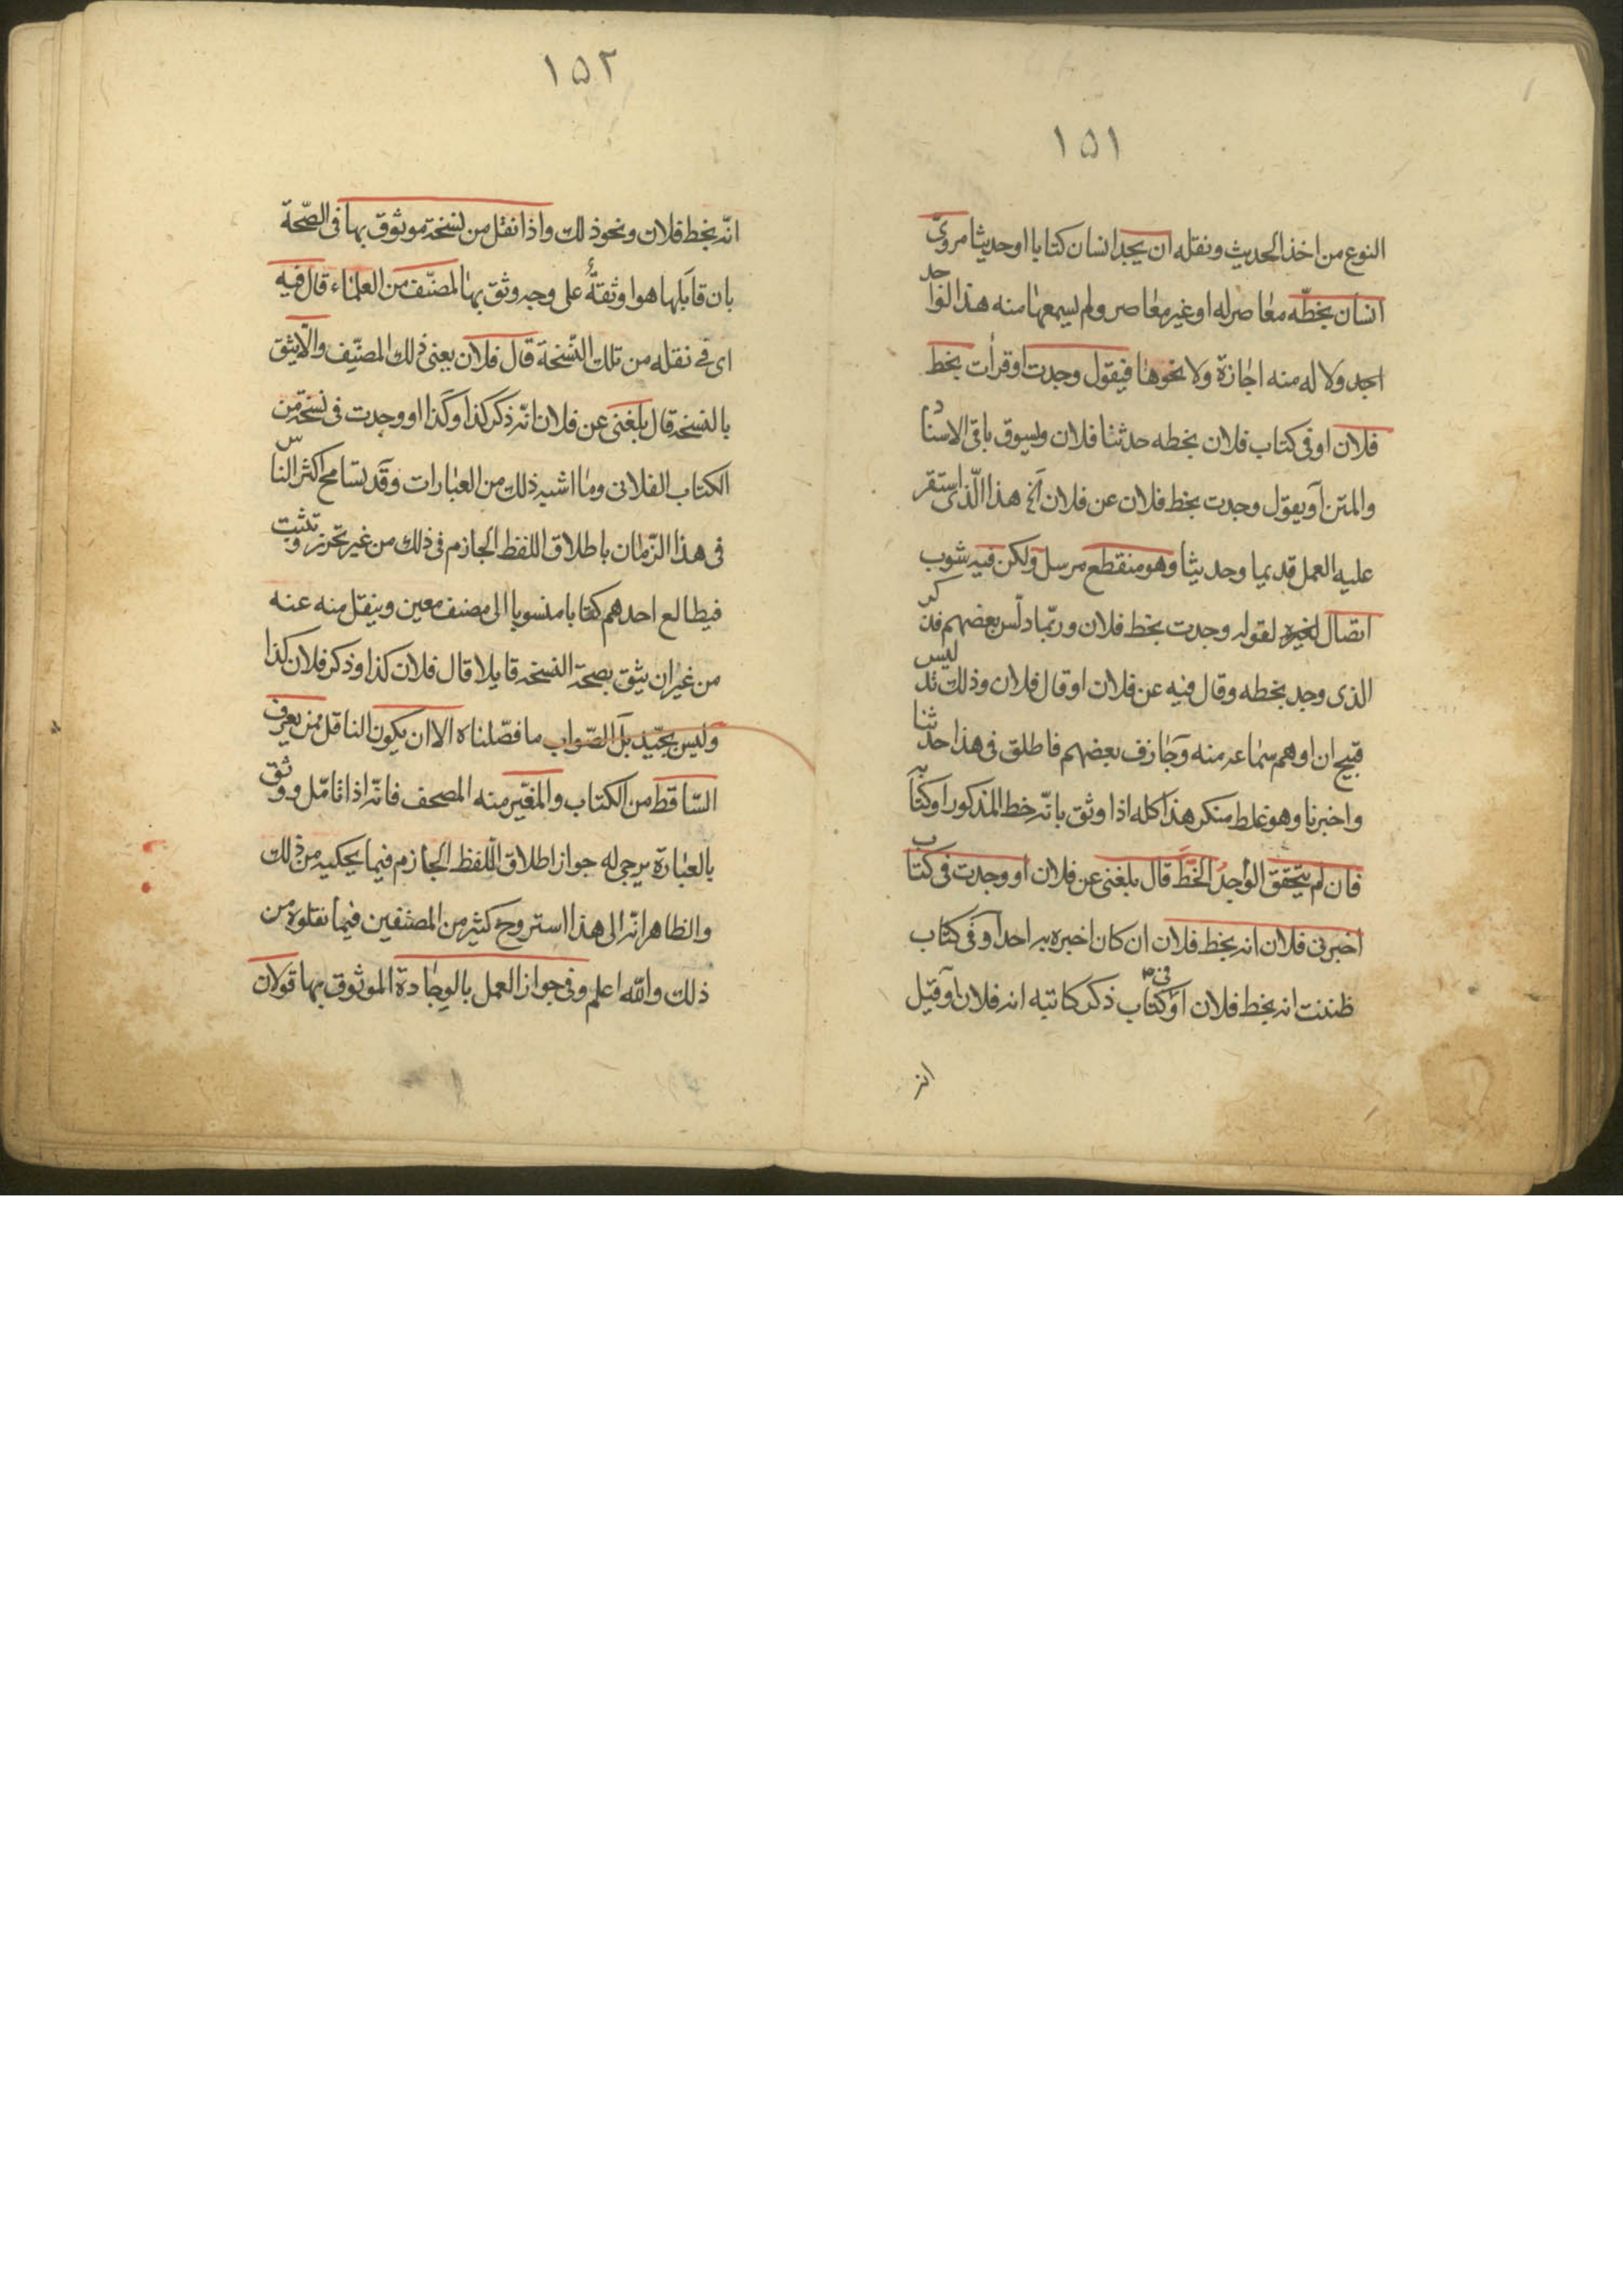 ١٥١
النوع من اخذ الحديث ونقله ان يجد انسان كتابا او حديثا مروىّ
انسان بخطّه معاصر له او غير معاصر ولم يسمعها منه هذا الواجد
اجد ولا له منه اجازة ولا نحوها فيقول وجدت او قرأت بخط
فلان او فى كتاب فلان بخطه حدثنا فلان ويسوق باقى الاسناد
والمتن او يقول وجدت بخط فلان عن فلان الخ هذا الّذى استقر
عليه العمل قديما وحديثا وهو منقطع مرسل ولكن فيه شوب
اتصال لقوله وجدت بخط فلان وربّما دلّس بعضهم فذكر
الذى وجد بخطه وقال فيه عن فلان او قال فلان وذلك تدليس
قبيح ان اوهم سماعه منه وجازف بعضهم فاطلق فى هذا حدثنا
واخبرنا وهو غلط منكر هذا كله اذا وثق بانّه خط المذكور او كتابه
فان لم يتحقق الواجدُ الخطَّ قال بلغنى عن فلان او وجدت فى كتاب
اخبرنى فلان انه بخط فلان ان كان اخبره به احد او فى كتاب
ظننت انه بخط فلان او فى كتاب ذكر كاتبه انه فلان او قيل
انه
١٥٢
انّه بخط فلان ونحو ذلك واذا نقل من نسخة موثوق بها فى الصّحة
بان قابلها هو او ثقةٌ على وجه وثق بها المصنّف من العلماء قال فيه
اى فى نقله من تلك النّسخة قال فلان يعنى ذلك المصنّف والّا يثق
بالنسخة قال بلغنى عن فلان انّه ذكر كذا وكذا او وجدت فى نسخة من
الكتاب الفلانى وما اشبه ذلك من العبارات وقد تسامح اكثر الناس
فى هذا الزّمان باطلاق اللفظ الجازم فى ذلك من غير تحرز وتثبت
فيطالع احدهم كتابا منسوبا الى مصنف معين وينقل منه عنه
من غير ان يثق بصحة النسخه قايلا قال فلان كذا وذكر فلان كذا
وليس بجيّد بل الصّواب ما فصّلناه الا ان يكون الناقل ممن يعرف
السّاقط من الكتاب والمغيّر منه المصحف فانّه اذا تامّل ووثق
بالعبارة يرجى له جواز اطلاق اللّفظ الجازم فيما يحكيه من ذلك
والظاهر انّه الى هذا استروح كثير من المصنفين فيما نقلوه من
ذلك واللّه اعلم وفى جواز العمل بالوجادة الموثوق بها قولان